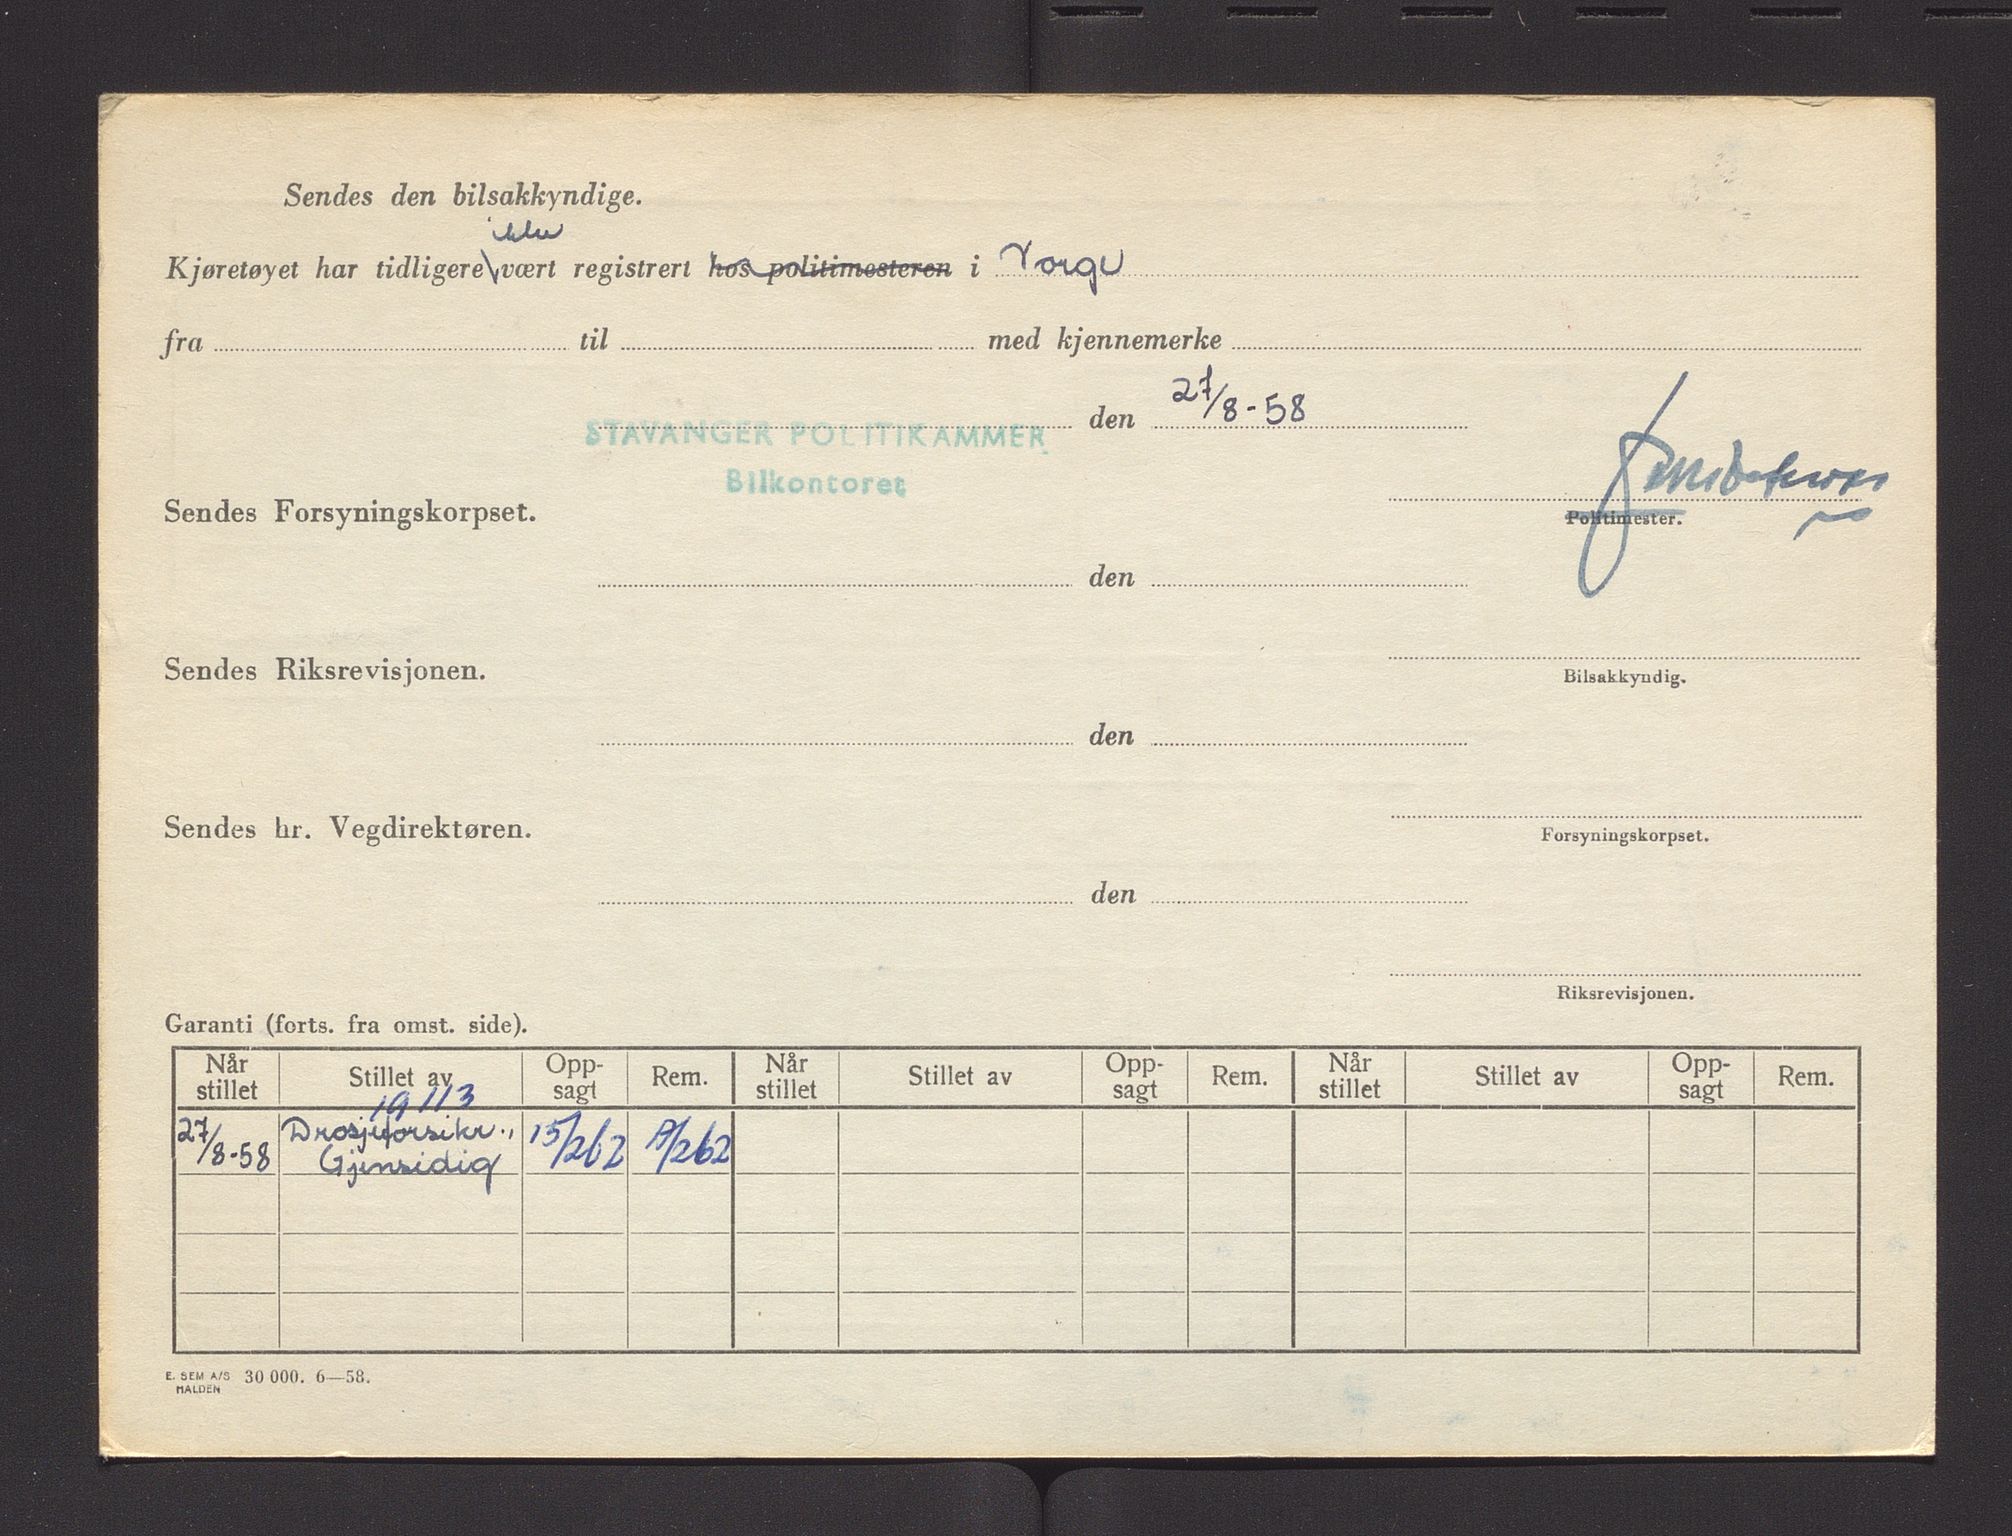 Sendes den bilsakkyndige.
ikke
Kjøretøyet har tidligere vært registrert hos politimesteren i Norge
fra til med kjennemerke
den 27/8-58
STAVANGER POLITIKAMMER
Bilkontoret
Sendes Forsyningskorpset.
Politimester.
den
Sendes Riksrevisjonen.
Bilsakkyndig.
den
Sendes hr. Vegdirektøren.
Forsyningskorpset.
den
Riksrevisjonen.
Garanti (forts. fra omst. side).
Når stillet Stillet av Opp-sagt Rem. Når stillet Stillet av Opp-sagt Rem. Når stillet Stillet av Opp-sagt Rem.
19113
27/8-58 Drosjeforsikr., 15/262 /262
Gjensidig
E. SEM A/S 30 000. 6—58.
HALDEN